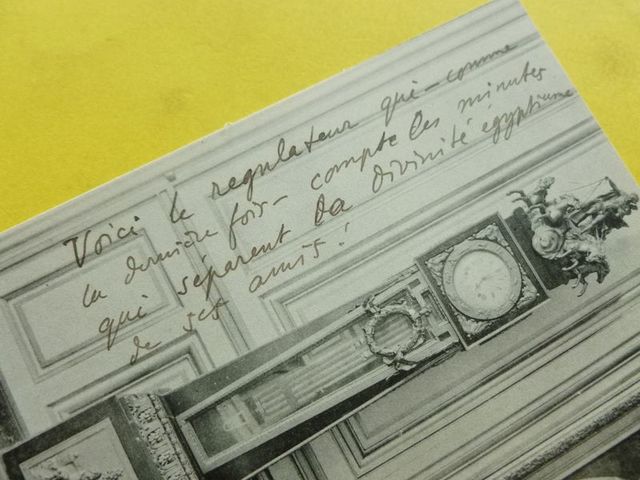 Voici le regulateur qui - comme
la dernière fois - compte les minutes
qui séparent la divinité égyptienne
de ses amis !